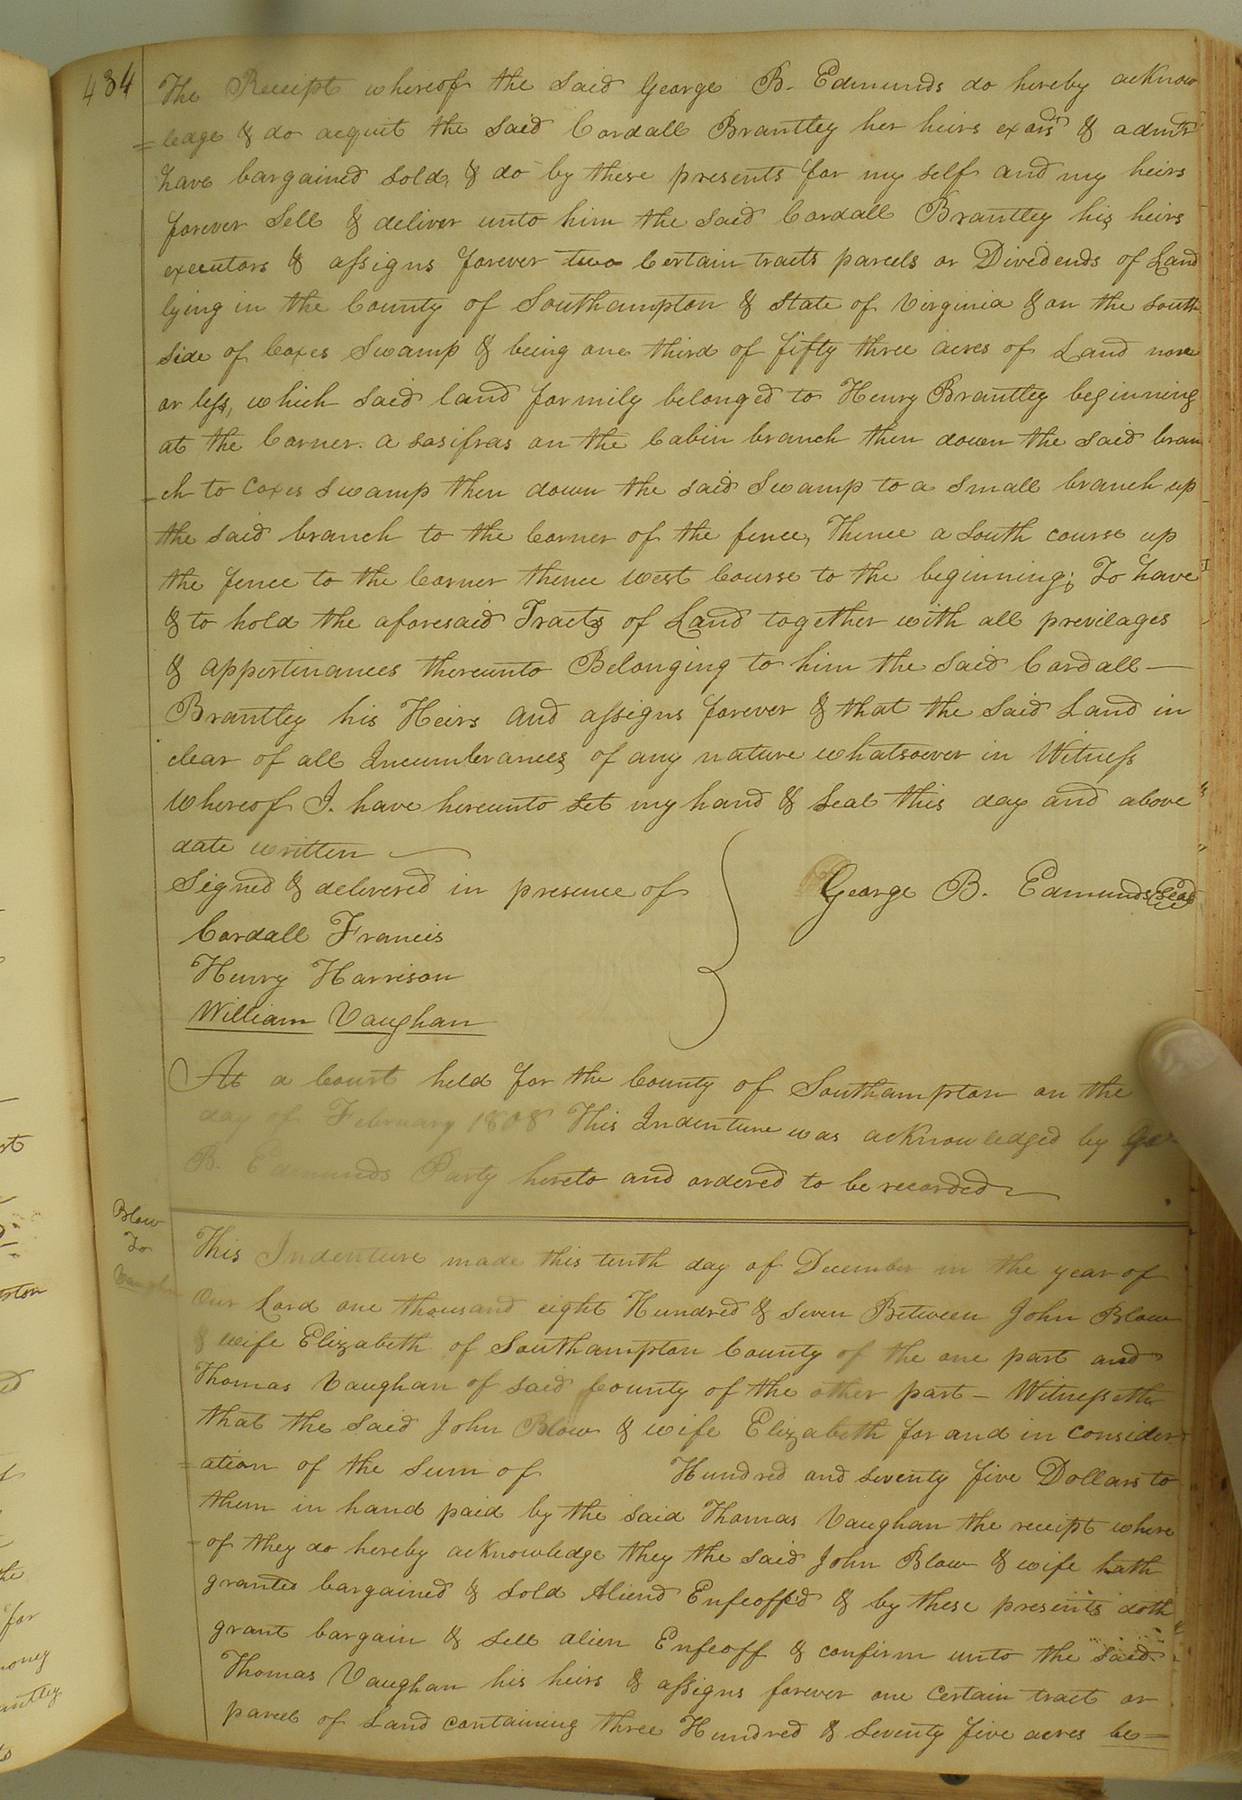 434
The Receipt whereof the said George B. Edmunds do hereby acknow
=ledge & do acquit the said Cordall Brantley her heirs exors & admrs
have bargained sold, & do by these presents for my self and my heirs
forever Sell & deliver unto him the said Cordall Brantley his heirs
executors & assigns forever two Certain tracts parcels or Dividends of Land
lying in the County of Southampton & State of Virginia & on the south
side of Coxes Swamp & being one third of fifty three acres of Land more
or less, which said land formily belonged to Henry Brantley beginning
at the Corner. a sasifras on the Cabin branch then down the said bran
-ch to Coxes swamp then down the said Swamp to a small branch up
the said branch to the Corner of the fence, Thence a south course up
the fence to the Corner thence west Course to the beginning; To have
& to hold the aforesaid Tracts of Land together with all previlages
& appertinances thereunto Belonging to him the said Cordall —
Brantley his Heirs and assigns forever & that the said Land in
clear of all Incumbrances of any nature whatsoever in Witness
Whereof I. have hereunto set my hand & seal this day and above
date written
Signed & delivered in presence of
George B. Edmunds Seal
Cordall Francis
Henry Harrison
William Vaughan
At a Court held for the County of Southampton on the
day of February 1808 This Indenture was acknowledged by Ge
B. Edmunds Party hereto and ordered to be recorded
Blow
To
Vaughan
This Indenture made this tenth day of December in the year of
Our Lord one thousand eight Hundred & seven Between John Blow
& wife Elizabeth of Southampton County of the one part and
Thomas Vaughan of said County of the other part — Witnesseth
that the said John Blow & wife Elizabeth for and in consider
=ation of the sum of Hundred and seventy five Dollars to
them in hand paid by the said Thomas Vaughan the receipt where
-of they do hereby acknowledge they the said John Blow & wife hath
granted bargained & sold Aliend Enfeoffed & by these presents doth
grant bargain & sell alien Enfeoff & confirm unto the said
Thomas Vaughan his heirs & assigns forever one certain tract or
parcel of Land containing three Hundred & seventy five acres be—